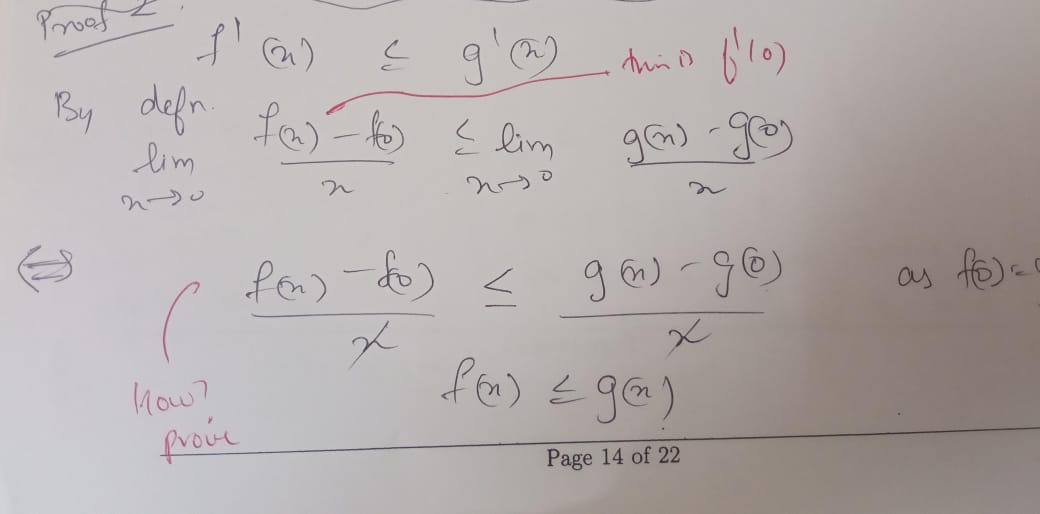 Proof 2
f'(x) ≤ g'(x) this is f'(0)
By defn.
lim x→0 f(x) - f(0) / x ≤ lim x→0 g(x) - g(0) / x
⇔ f(x) - f(0) / x ≤ g(x) - g(0) / x as f(0) =
How?
prove
f(x) ≤ g(x)
Page 14 of 22